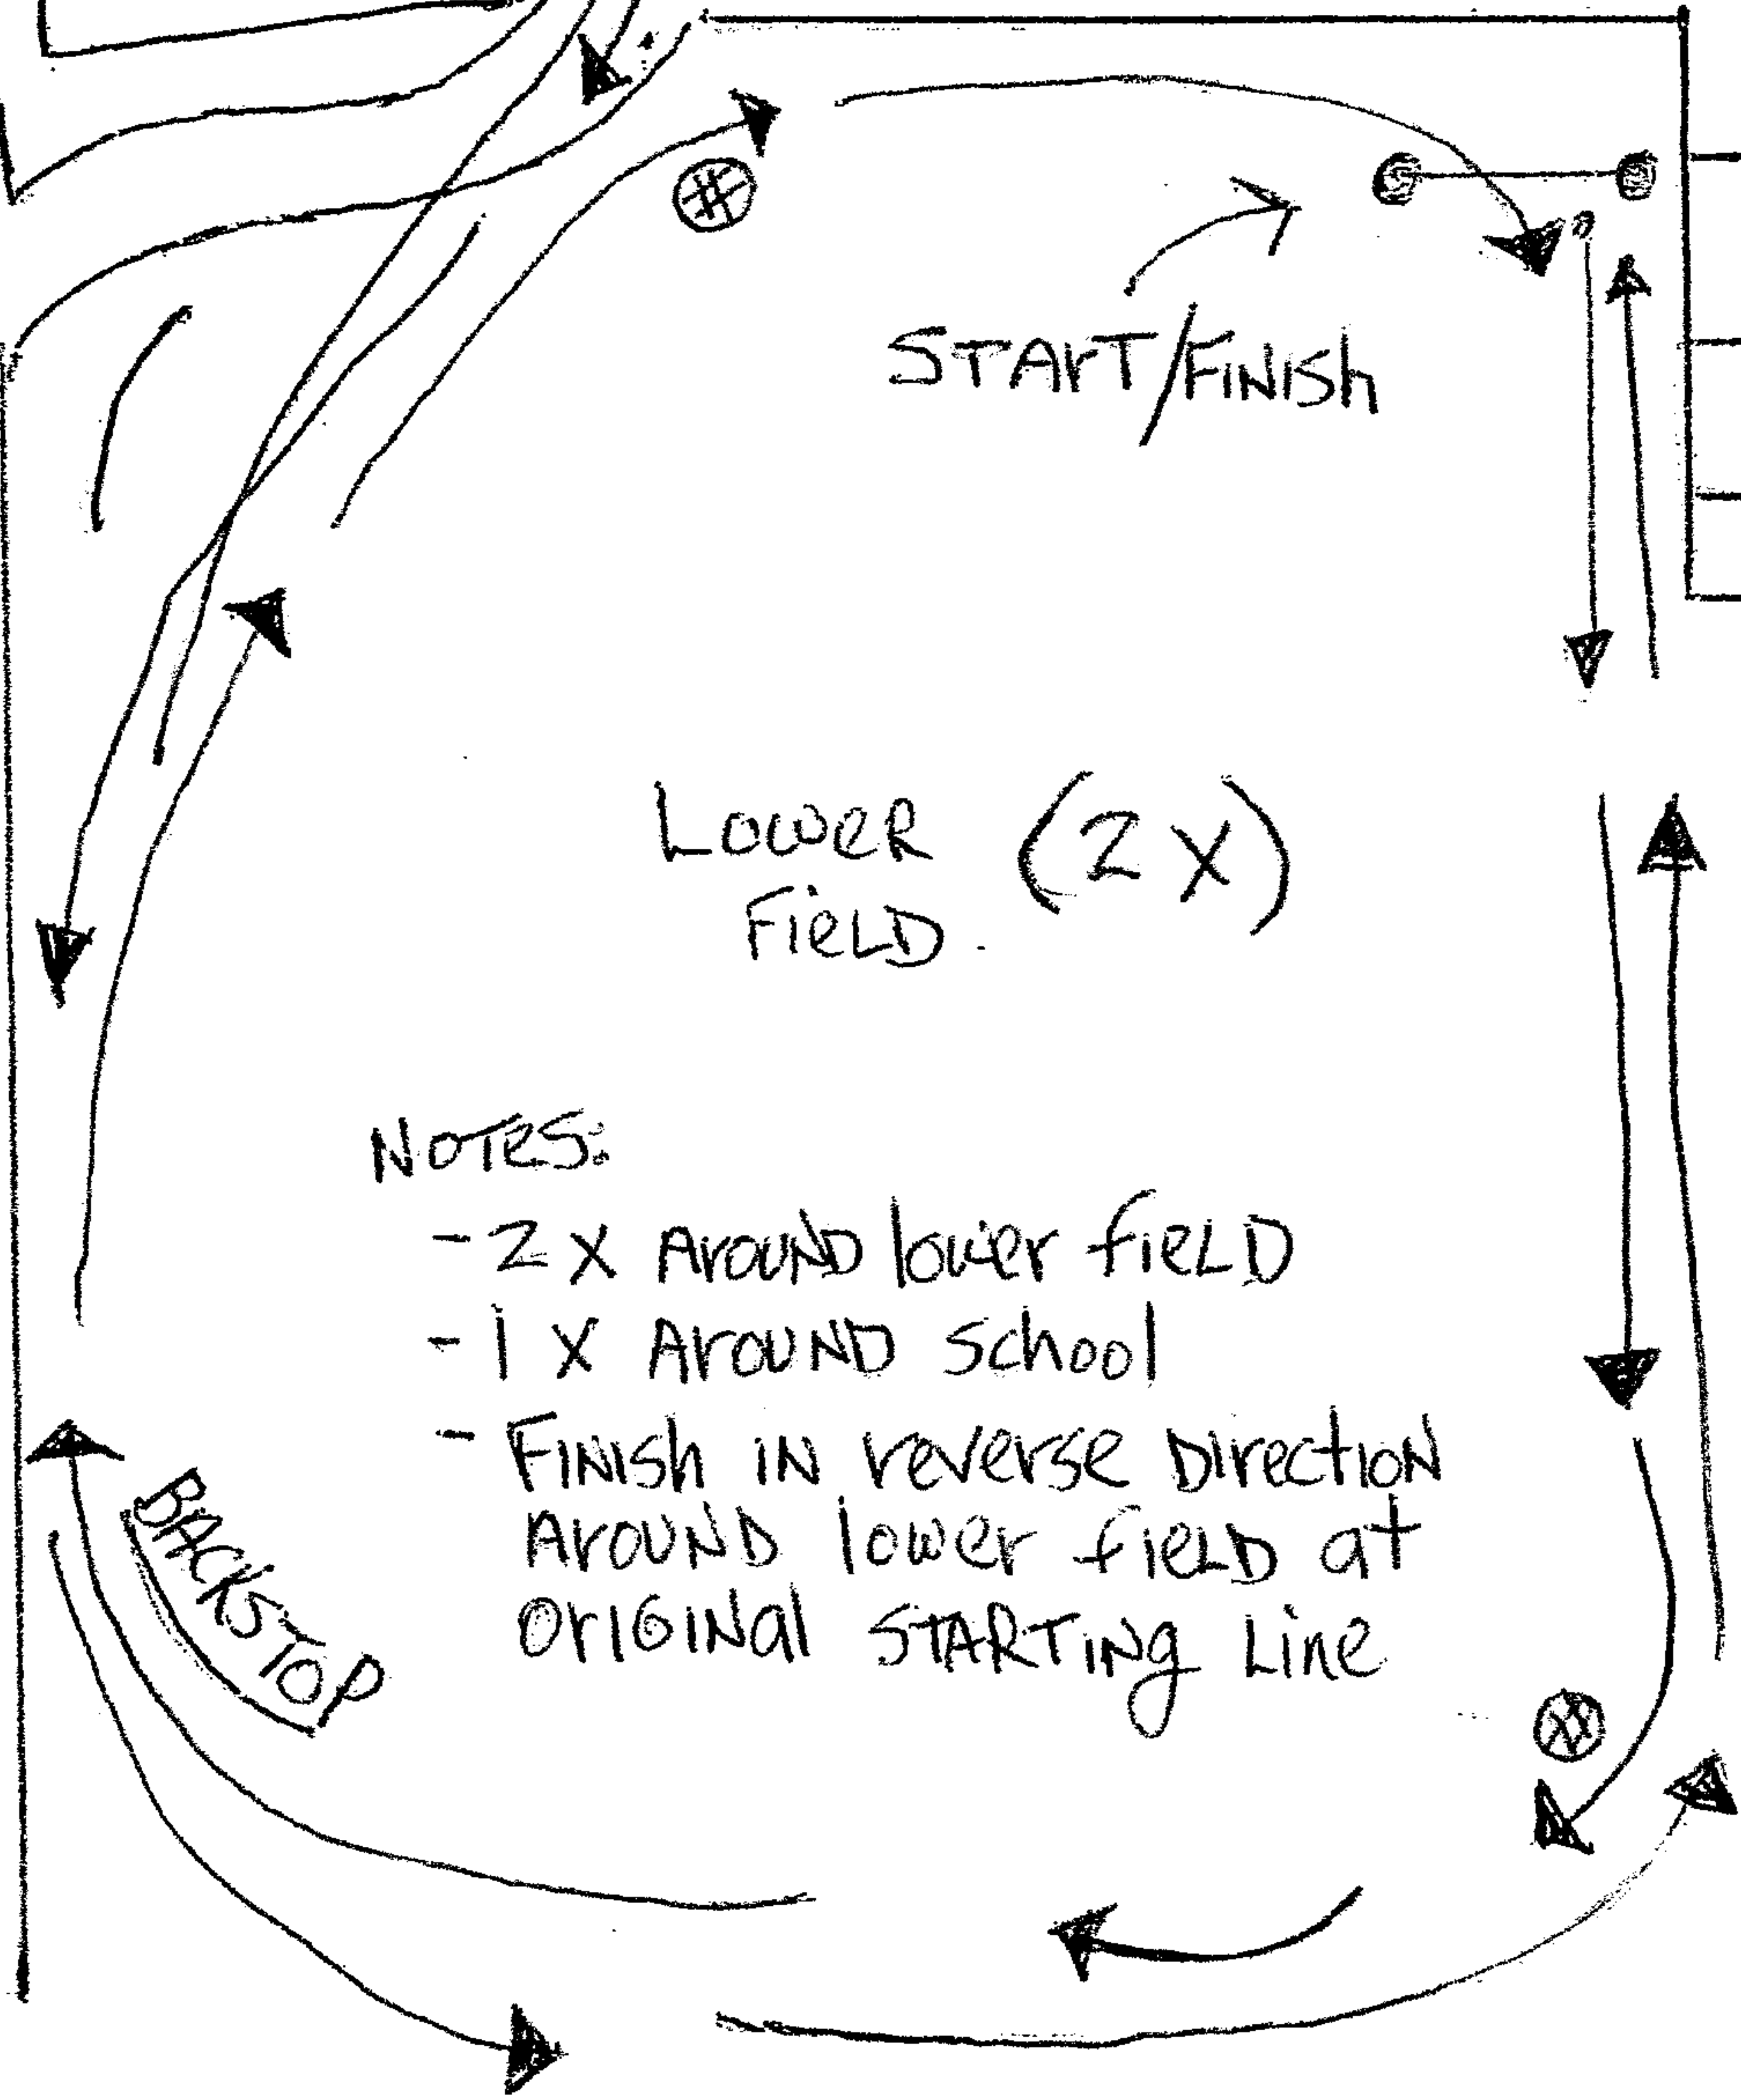 START/FINISH
LOWER (2X)
FIELD
NOTES:
- 2 X AROUND lower field
- 1 X AROUND School
- FINISH IN reverse Direction
AROUND lower field at
ORIGINal STARTINg Line
BACKSTOP